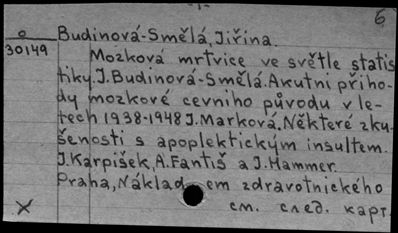 6
Budinová-Smělá, Jiřina.
o
30149
Mozková mrtvice ve světle statis
tiky. J. Budinová-Smělá. Akutni přiho-
dy mozkové cevniho původu v le-
tech 1938-1948 J. Marková. Některé zku
šenosti s apoplektickým insultem.
J. Karpišek, A. Fantiš a J. Hammer.
Praha, Náklad em zdravotnického
см. след. карт.
X